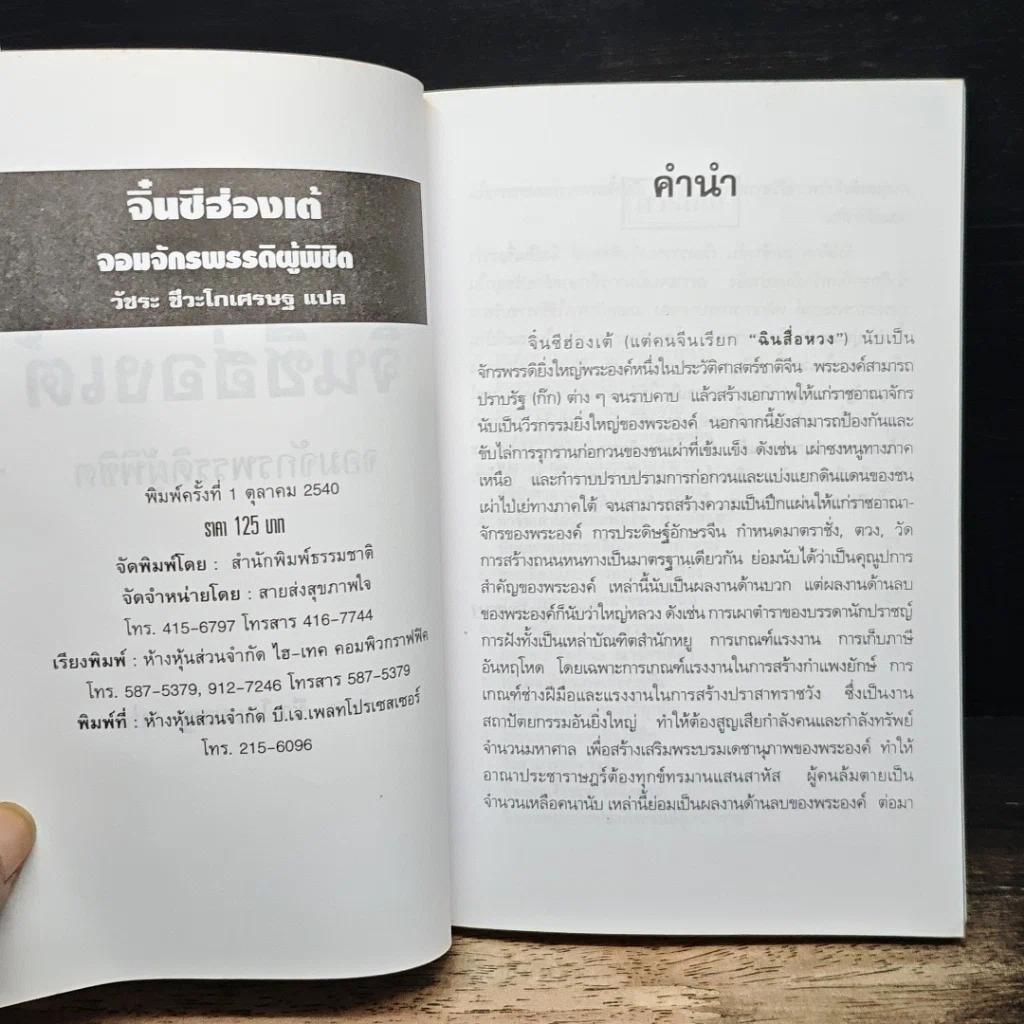 จิ๋นซีฮ่องเต้
จอมจักรพรรดิผู้พิชิต
วัชระ ชีวะโกเศรษฐ แปล
พิมพ์ครั้งที่ 1 ตุลาคม 2540
ราคา 125 บาท
จัดพิมพ์โดย : สำนักพิมพ์ธรรมชาติ
จัดจำหน่ายโดย : สายส่งสุขภาพใจ
โทร. 415-6797 โทรสาร 416-7744
เรียงพิมพ์ : ห้างหุ้นส่วนจำกัด ไฮ-เทค คอมพิวกราฟฟิค
โทร. 587-5379, 912-7246 โทรสาร 587-5379
พิมพ์ที่ : ห้างหุ้นส่วนจำกัด บี.เจ.เพลทโปรเซสเซอร์
โทร. 215-6096
คำนำ
จิ๋นซีฮ่องเต้ (แต่คนจีนเรียก “ฉินสื่อหวง”) นับเป็น
จักรพรรดิยิ่งใหญ่พระองค์หนึ่งในประวัติศาสตร์ชาติจีน พระองค์สามารถ
ปราบรัฐ (ก๊ก) ต่าง ๆ จนราบคาบ แล้วสร้างเอกภาพให้แก่ราชอาณาจักร
นับเป็นวีรกรรมยิ่งใหญ่ของพระองค์ นอกจากนี้ยังสามารถป้องกันและ
ขับไล่การรุกรานก่อกวนของชนเผ่าที่เข้มแข็ง ดังเช่น เผ่าซงหนูทางภาค
เหนือ และกำราบปราบปรามการก่อกวนและแบ่งแยกดินแดนของชน
เผ่าไป่เย่ทางภาคใต้ จนสามารถสร้างความเป็นปึกแผ่นให้แก่ราชอาณา-
จักรของพระองค์ การประดิษฐ์อักษรจีน กำหนดมาตราชั่ง, ตวง, วัด
การสร้างถนนหนทางเป็นมาตรฐานเดียวกัน ย่อมนับได้ว่าเป็นคุณูปการ
สำคัญของพระองค์ เหล่านี้นับเป็นผลงานด้านบวก แต่ผลงานด้านลบ
ของพระองค์ก็นับว่าใหญ่หลวง ดังเช่น การเผาตำราของบรรดานักปราชญ์
การฝังทั้งเป็นเหล่าบัณฑิตสำนักหยู การเกณฑ์แรงงาน การเก็บภาษี
อันหฤโหด โดยเฉพาะการเกณฑ์แรงงานในการสร้างกำแพงยักษ์ การ
เกณฑ์ช่างฝีมือและแรงงานในการสร้างปราสาทราชวัง ซึ่งเป็นงาน
สถาปัตยกรรมอันยิ่งใหญ่ ทำให้ต้องสูญเสียกำลังคนและกำลังทรัพย์
จำนวนมหาศาล เพื่อสร้างเสริมพระบรมเดชานุภาพของพระองค์ ทำให้
อาณาประชาราษฎร์ต้องทุกข์ทรมานแสนสาหัส ผู้คนล้มตายเป็น
จำนวนเหลือคณานับ เหล่านี้ย่อมเป็นผลงานด้านลบของพระองค์ ต่อมา